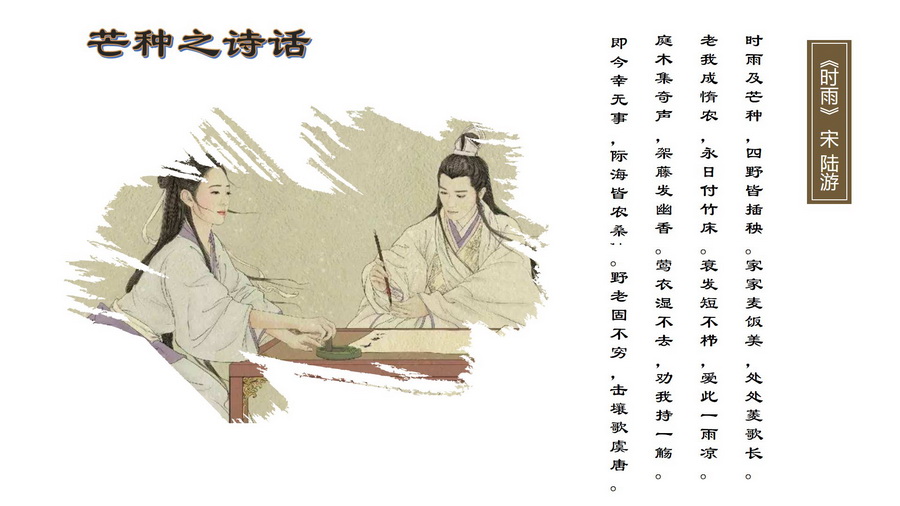 芒种之诗话
《时雨》 宋 陆游
时雨及芒种,四野皆插秧。家家麦饭美,处处菱歌长。
老我成惰农,永日付竹床。衰发短不栉,爱此一雨凉。
庭木集奇声,架藤发幽香。莺衣湿不去,劝我持一觞。
即今幸无事,际海皆农桑。野老固不穷,击壤歌虞唐。